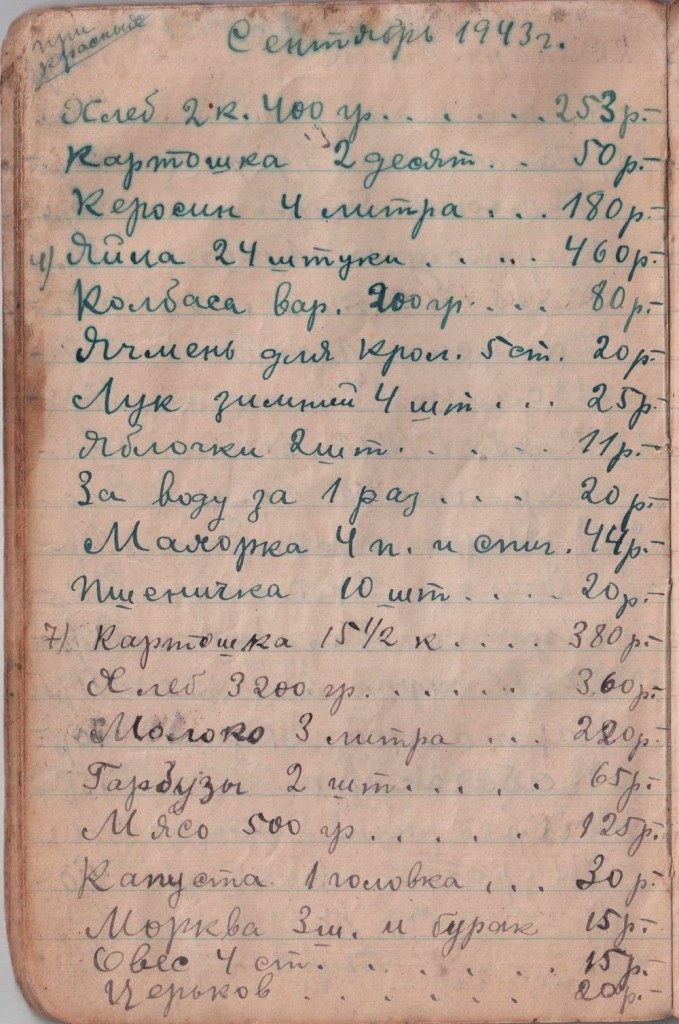 при красных
Сентябрь 1943г.
Хлеб 2 к. 400 гр. . . . . . . 253р.-
Картошка 2 десят. . . 50р.-
Керосин 4 литра . . . 180р.-
4) Яйца 24 штуки . . . . . 460р.-
Колбаса вар. 200гр. . . . 80р.-
Ячмень для крол. 5 ст. 20р.-
Лук зимний 4 шт . . . 25р.-
Яблочки 2шт. . . . . . 11р.-
За воду за 1 раз . . . . 20р.-
Махорка 4 п. и спич. 44р.-
Пшеничка 10 шт . . . . 20р.-
7) Картошка 15 1/2 к . . . . 380р.-
Хлеб 3200 гр. . . . . . . 360р.-
Молоко 3 литра . . . 220р.-
Гарбузы 2 шт. . . . . 65р.-
Мясо 500 гр . . . . . 125р.-
Капуста 1 головка . . . 30р.-
Морква 3ш. и бурак 15р.-
Овес 4 ст. . . . . . . 15р.-
Церьков . . . . . . . 20р.-